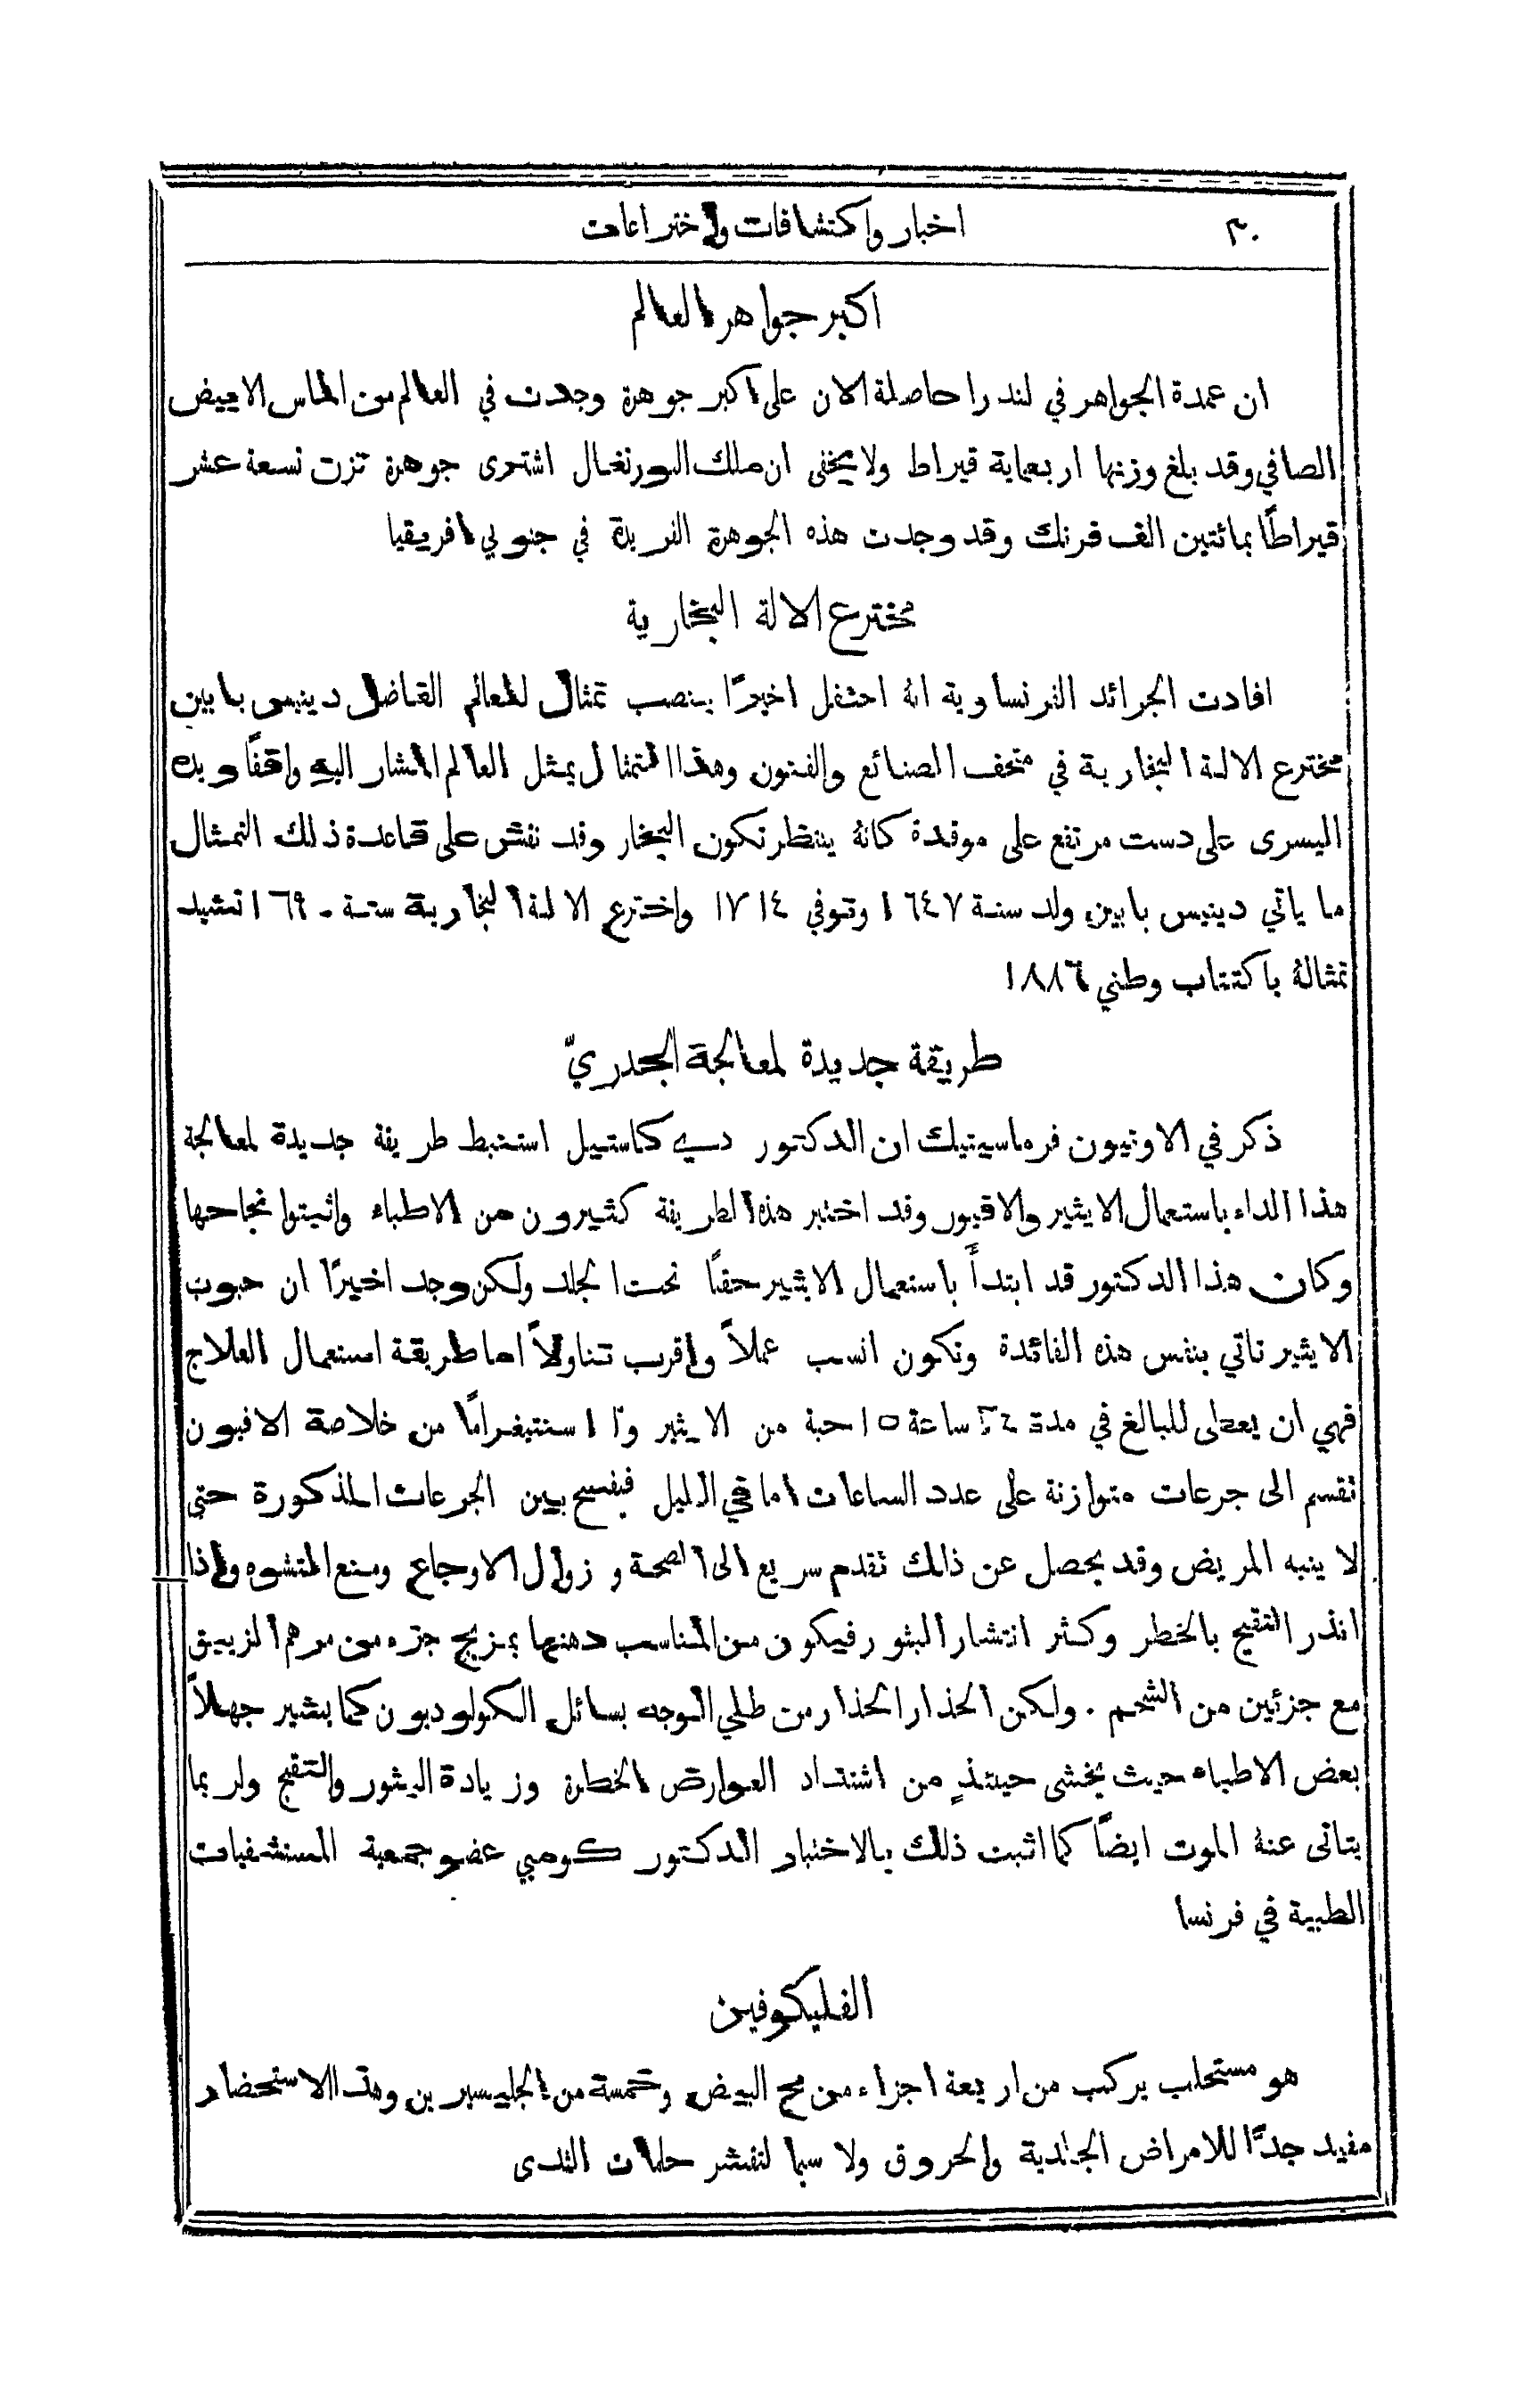 ٣٠
اخبار واكتشافات واختراعات
اكبر جواهر العالم
ان عمدة الجواهر في لندرا حاصلة الان على اكبر جوهرة وجدت في العالم من الماس الابيض
الصافي وقد بلغ وزنها اربعماية قيراط ولا يخفى ان ملك البورتغال اشترى جوهرة تزت تسعة عشر
قيراطًا بمائتين الف فرنك وقد وجدت هذه الجوهرة الفريدة في جنوبي افريقيا
مخترع الالة البخارية
افادت الجرائد الفرنساوية انهُ احتفل اخيرًا بنصب تمثال للعالم الفاضل دينيس بابين
مخترع الالة البخارية في متحف الصنائع والفنون وهذا التمثال يمثل العالم المشار اليه واقفًا ويده
اليسرى على دست مرتفع على موقدة كانهُ ينتظر تكون البخار وقد نقش على قاعدة ذلك التمثال
ما ياتي دينيس بابين ولد سنة ١٦٤٧ وتوفي ١٧١٤ واخترع الالة البخارية سنة ١٦٩٠ تشيد
تمثالهُ باكتتاب وطني ١٨٨٦
طريقة جديدة لمعالجة الجدريّ
ذكر في الاونيون فرماسيتيك ان الدكتور دي كاستيل استنبط طريقة جديدة لمعالجة
هذا الداء باستعمال الايثير والافيون وقد اختبر هذه الطريقة كثيرون من الاطباء واثبتوا نجاحها
وكان هذا الدكتور قد ابتدأ باستعمال الايثير حقنًا تحت الجلد ولكن وجد اخيرًا ان حبوب
الايثير تاتي بنفس هذه الفائدة وتكون انسب عملاً واقرب تناولاً اما طريقة استعمال العلاج
فهي ان يعطى للبالغ في مدة ٢٤ ساعة ١٥ حبة من الايثير و سنتيغرامًا من خلاصة الافيون
تقسم الى جرعات متوازنة على عدد الساعات اما في الليل فيفسح بين الجرعات المذكورة حتى
لا ينبه المريض وقد يحصل عن ذالك تقدم سريع الى الصحة وزوال الاوجاع ومنع التشوه واذا
انذر التقيح بالخطر وكثر انتشار البثور فيكون من المناسب دهنها بمزيج جزء من مرهم الزيبق
مع جزئين من الشحم . ولكن الحذار الحذار من طلي الوجه بسائل الكولوديون كما يشير جهلاً
بعض الاطباء حيث يخشى حينئذٍ من اشتداد العوارض الخطرة وزيادة البثور والتقيح ولربما
يتاتى عنهُ الموت ايضًا كما اثبت ذلك بالاختبار الدكتور كومبي عضو جمعية المستشفيات
الطبية في فرنسا
الغليكوفين
هو مستحلب يركب من اربعة اجزاء من مح البيض وخمسة من الجليسيرين وهذا الاستحضار
مفيد جدًّا للامراض الجلدية والحروق ولا سيما لتقشر حلمات الثدى